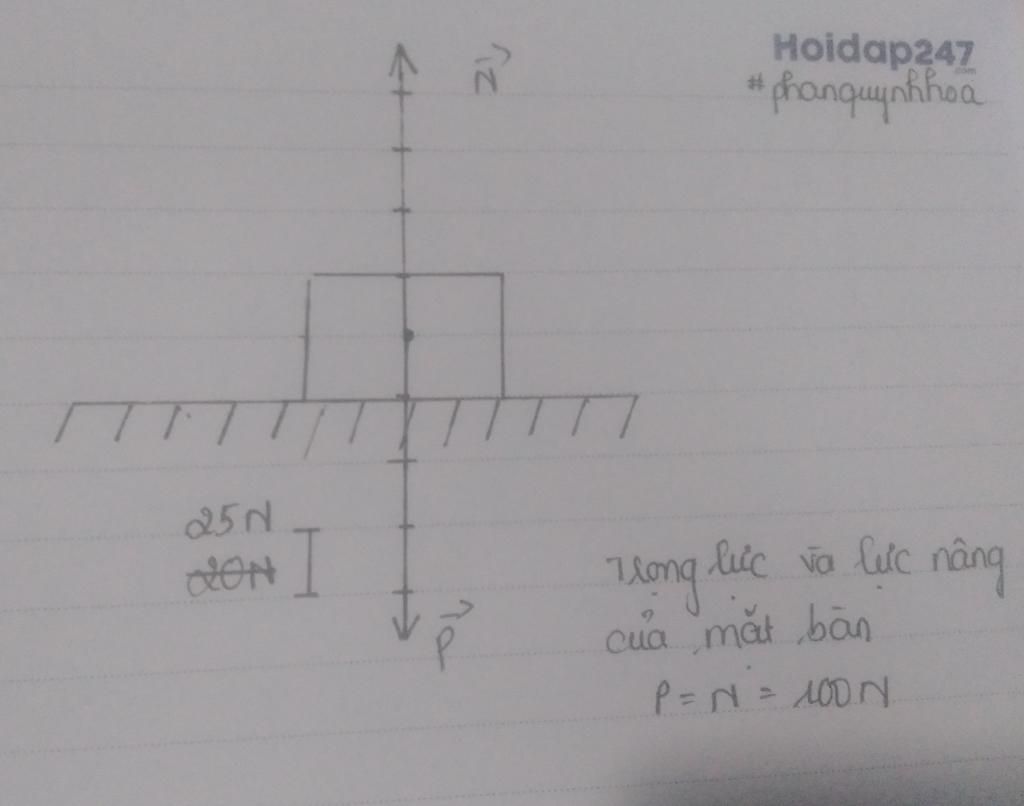 Hoidap247
.com
#phanquynhhoa
N
25N
20N
P
Trọng lực và lực nâng
của mặt bàn
P = N = 100N